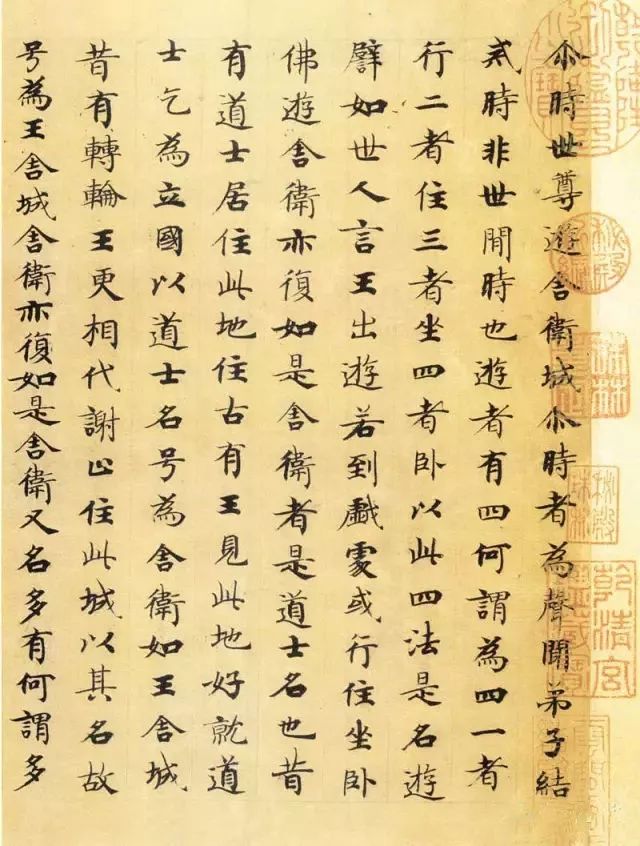 尒時世尊遊舍衛城尒時者為聲聞弟子結
戒時非世間時也遊者有四何謂為四一者
行二者住三者坐四者卧以此四法是名遊
譬如世人言王出遊若到戲處或行住坐卧
佛遊舍衛亦復如是舍衛者是道士名也昔
有道士居住此地住古有王見此地好就道
士乞為立國以道士名号為舍衛如王舍城
昔有轉輪王更相代謝止住此城以其名故
号為王舍城舍衛亦復如是舍衛又名多有何謂多
乾清宮